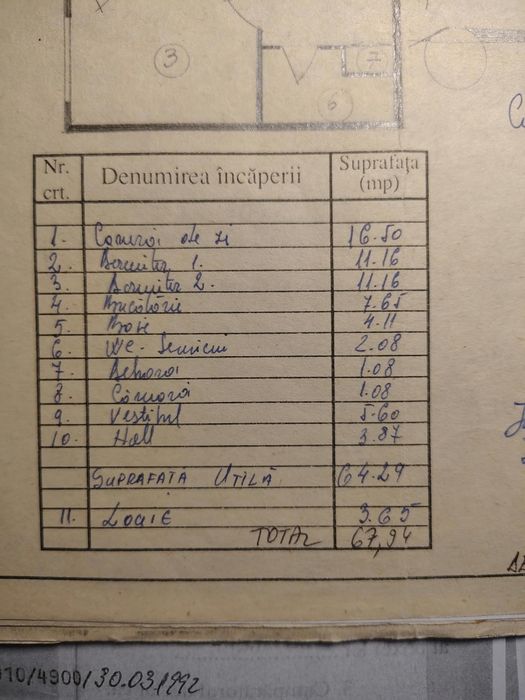 3
7
6
Nr. crt. Denumirea încăperii Suprafața (mp)
1. Cameră de zi 16.50
2. Dormitor 1. 11.16
3. Dormitor 2. 11.16
4. Bucătărie 7.65
5. Baie 4.11
6 WC-Serviciu 2.08
7 Debara 1.08
8 Cămară 1.08
9. Vestibul 5.60
10. Hall 3.87
SUPRAFAȚĂ UTILĂ 64.29
11. LOGIE 3.65
TOTAL 67,94
010/4900/30.03.1992